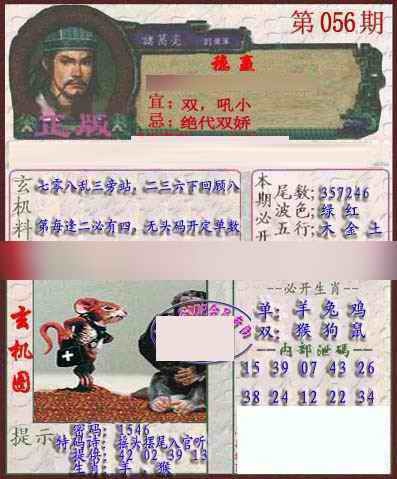 第056期
諸葛亮
稳赢
宜：双，吼小
忌：绝代双娇
正版
玄机料
七零八乱三旁站，二三六下回顾八
第每逢二必有四，无头码开定单数
本期必开
尾数；357246
波色；绿 红
五行；木 金 土
玄机图
--必开生肖--
单：羊 兔 鸡
双：猴 狗 鼠
--内部泄码--
15 39 07 43 26
38 24 12 22 34
提示
密码：1546
特码诗：摇头摆尾入官听
提供：42 02 39 13
生肖：羊、猴